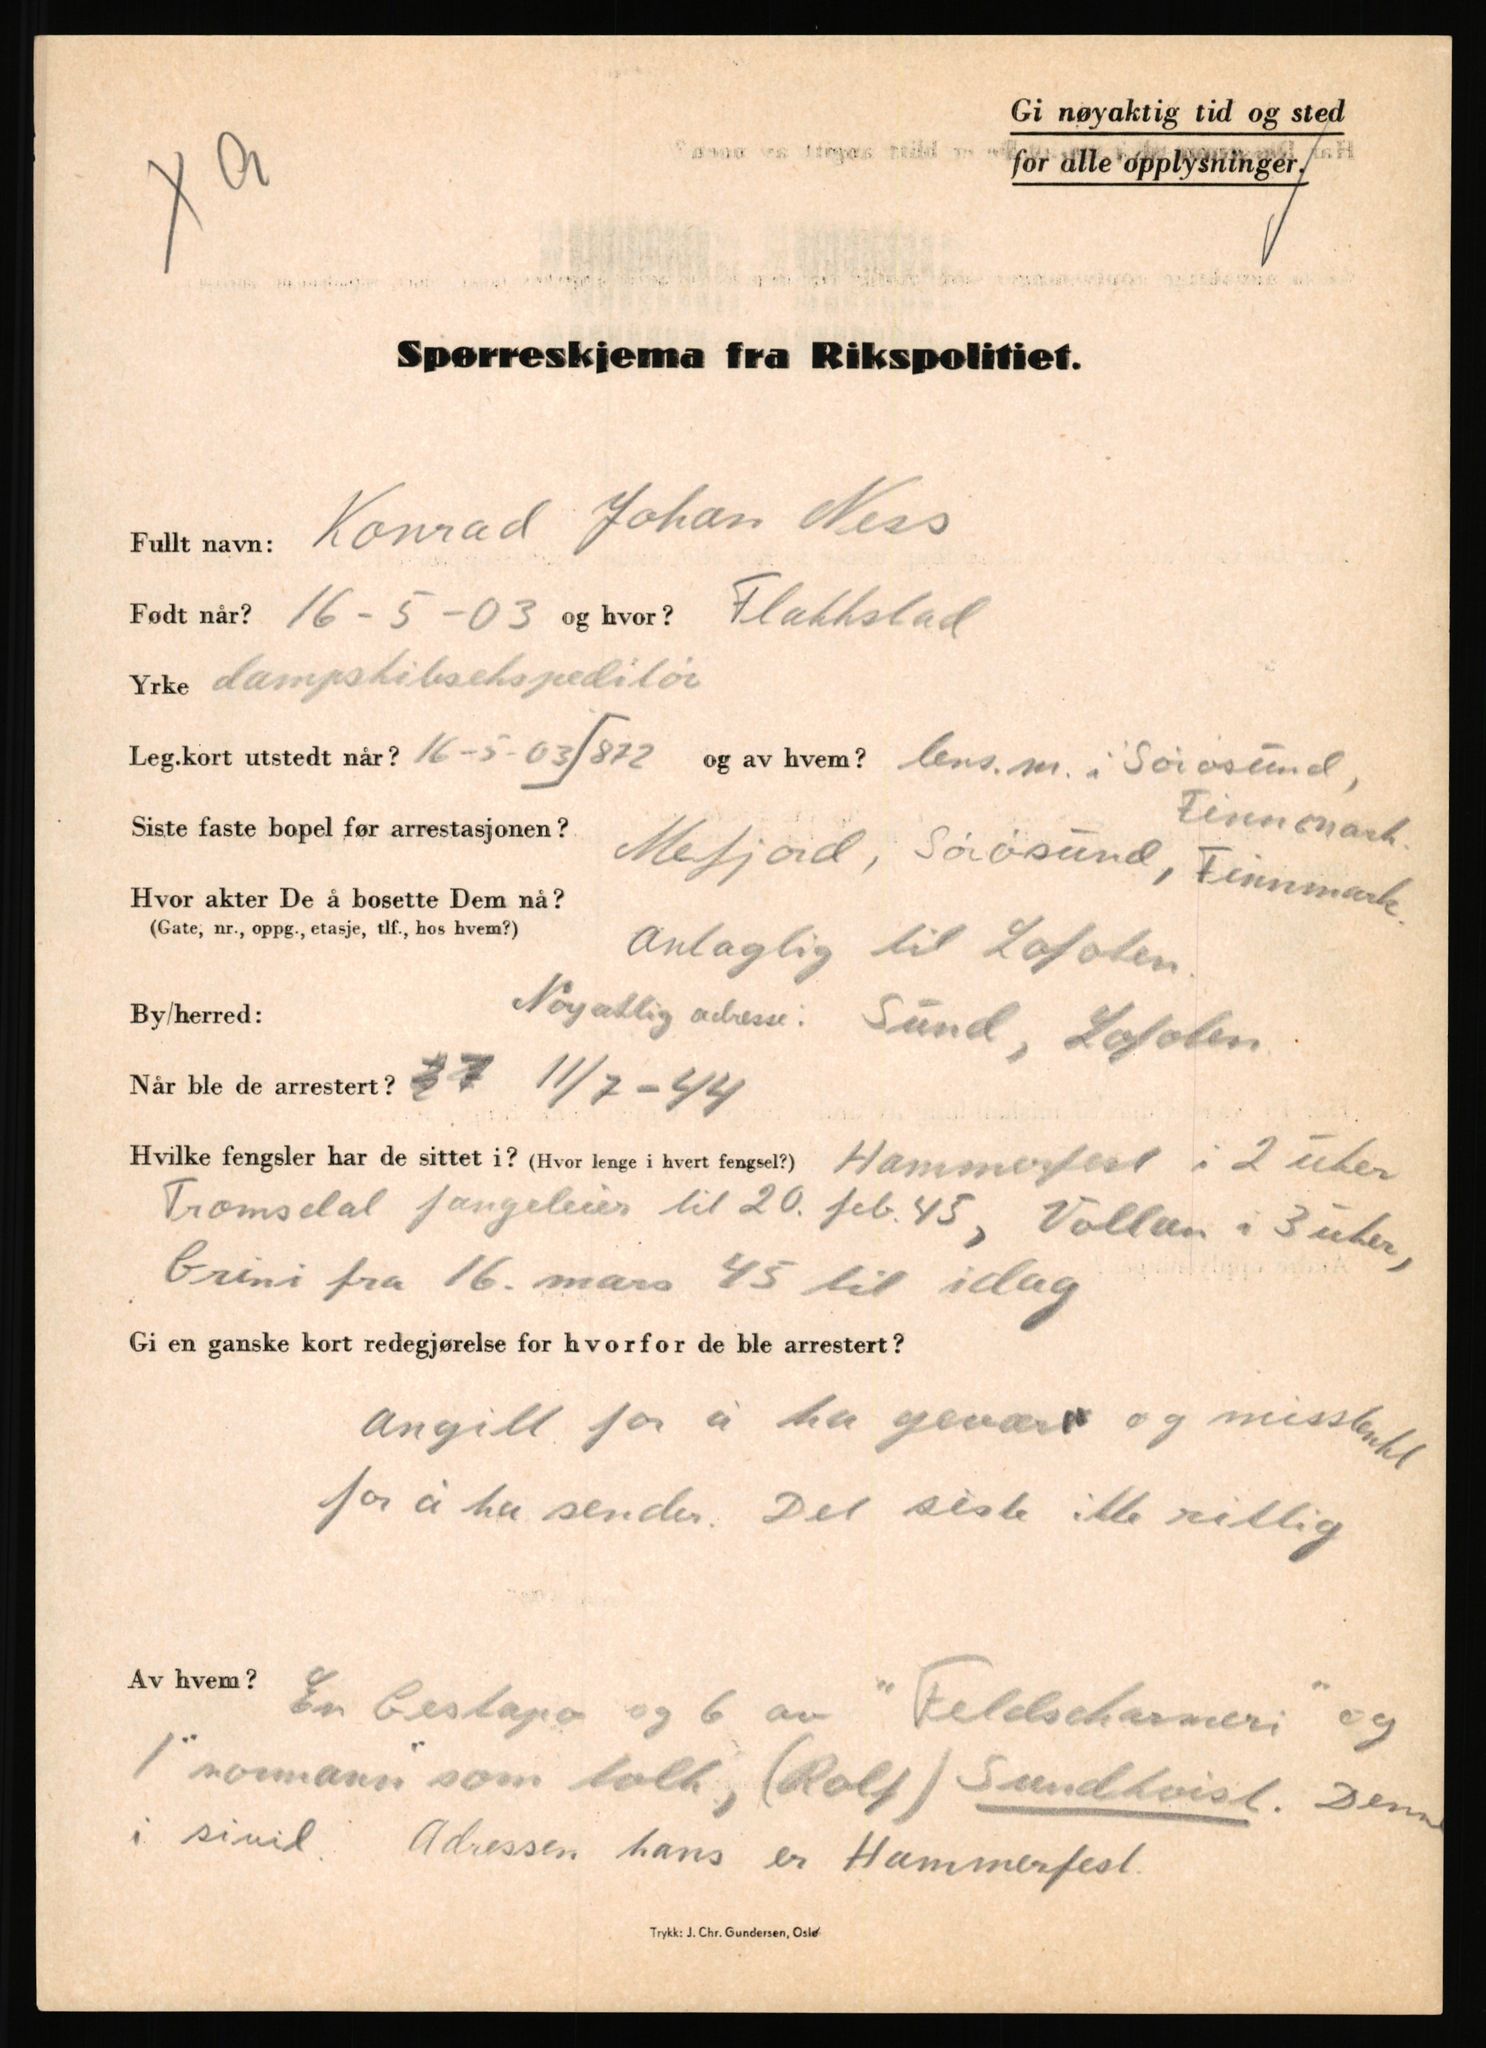 Gi nøyaktig tid og sted
for alle opplysninger.
X a
Spørreskjema fra Rikspolitiet.
Fullt navn: Konrad Johan Ness
Født når? 16-5-03 og hvor? Flakkstad
Yrke dampskibsekspeditör
Leg.kort utstedt når? 16-5-03/872 og av hvem? lens.m. i SöröSund,
Finnmark.
Siste faste bopel før arrestasjonen? Mefjord, Sörösund, Finnmark.
Hvor akter De å bosette Dem nå?
(Gate, nr., oppg., etasje, tlf., hos hvem?) Antaglig til Lofoten.
By/herred: Nöyaktig adresse: Sund, Lofoten
Når ble de arrestert? 11/7-44
Hvilke fengsler har de sittet i? (Hvor lenge i hvert fengsel?) Hammerfest i 2 uker
Tromsdal fangeleier til 20. feb. 45, Vollan i 3 uker,
Grini fra 16. mars 45 til idag
Gi en ganske kort redegjørelse for hvorfor de ble arrestert?
Angitt for å ha gevær og misstenkt
for å ha sender. Det siste ikke riktig
Av hvem? En Gestapo og 6 av "Feldscharmeri" og
1 "normann" som tolk, (Rolf) Sundkvist. Denne
i sivil. Adressen hans er Hammerfest.
Trykk: J. Chr. Gundersen, Oslo